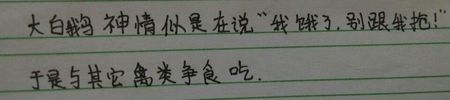 大白鹅神情似是在说“我饿了，别跟我抢！”
于是与其它禽类争食吃.